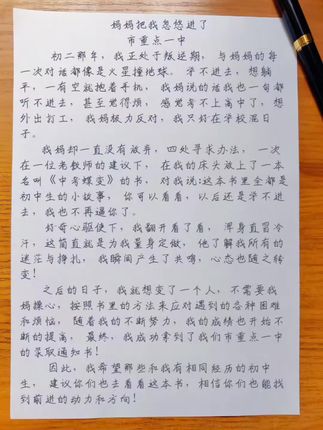 妈妈把我忽悠进了
市重点一中
初二那年，我正处于叛逆期，与妈妈的每
一次对话都像是火星撞地球。学不进去，想躺
平，一有空就抱着手机，我妈说的话我也一句都
听不进去，甚至觉得烦，感觉考不上高中了，想
外出打工，我妈极力反对，我只好在学校混日
子。
我妈却一直没有放弃，四处寻求办法，一次
在一位老教师的建议下，在我的床头放上了一本
名叫《中考蝶变》的书，对我说：这本书里全都是
初中生的小故事，你可以看看，以后还是学不进
去，我也不再逼你了。
好奇心驱使下，我翻开看了看，浑身直冒冷
汗，这简直就是为我量身定做，他了解我所有的
迷茫与挣扎，我瞬间产生了共鸣，心态也随之转
变！
之后的日子，我就想变了一个人，不需要我
妈操心，按照书里的方法来应对遇到的各种困难
和烦恼，随着我的不断努力，我的成绩也开始不
断的提高，最终，我成功拿到了我们市重点一中
的录取通知书！
因此，我希望那些和我有相同经历的初中
生，建议你们也去看看这本书，相信你们也能找
到前进的动力和方向！